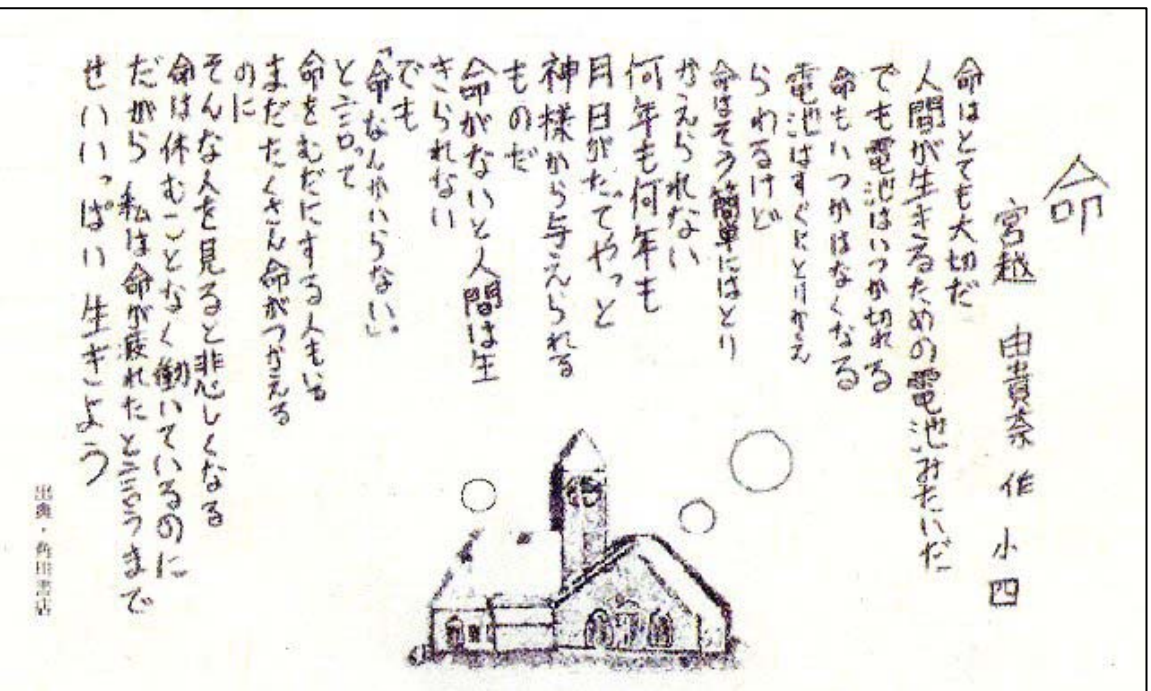 命
宮越 由貴奈 作 小四
命はとても大切だ
人間が生きるための電池みたいだ
でも電池はいつか切れる
命もいつかはなくなる
電池はすぐにとりかえ
られるけど
命はそう簡単にはとり
かえられない
何年も何年も
月日がたってやっと
神様から与えられる
ものだ
命がないと人間は生
きられない
でも
「命なんかいらない。」
と言って
命をむだにする人もいる
まだたくさん命がつかえる
のに
そんな人を見ると悲しくなる
命は休むことなく働いているのに
だから 私は命が疲れたと言うまで
せいいっぱい生きよう
出典・角川書店